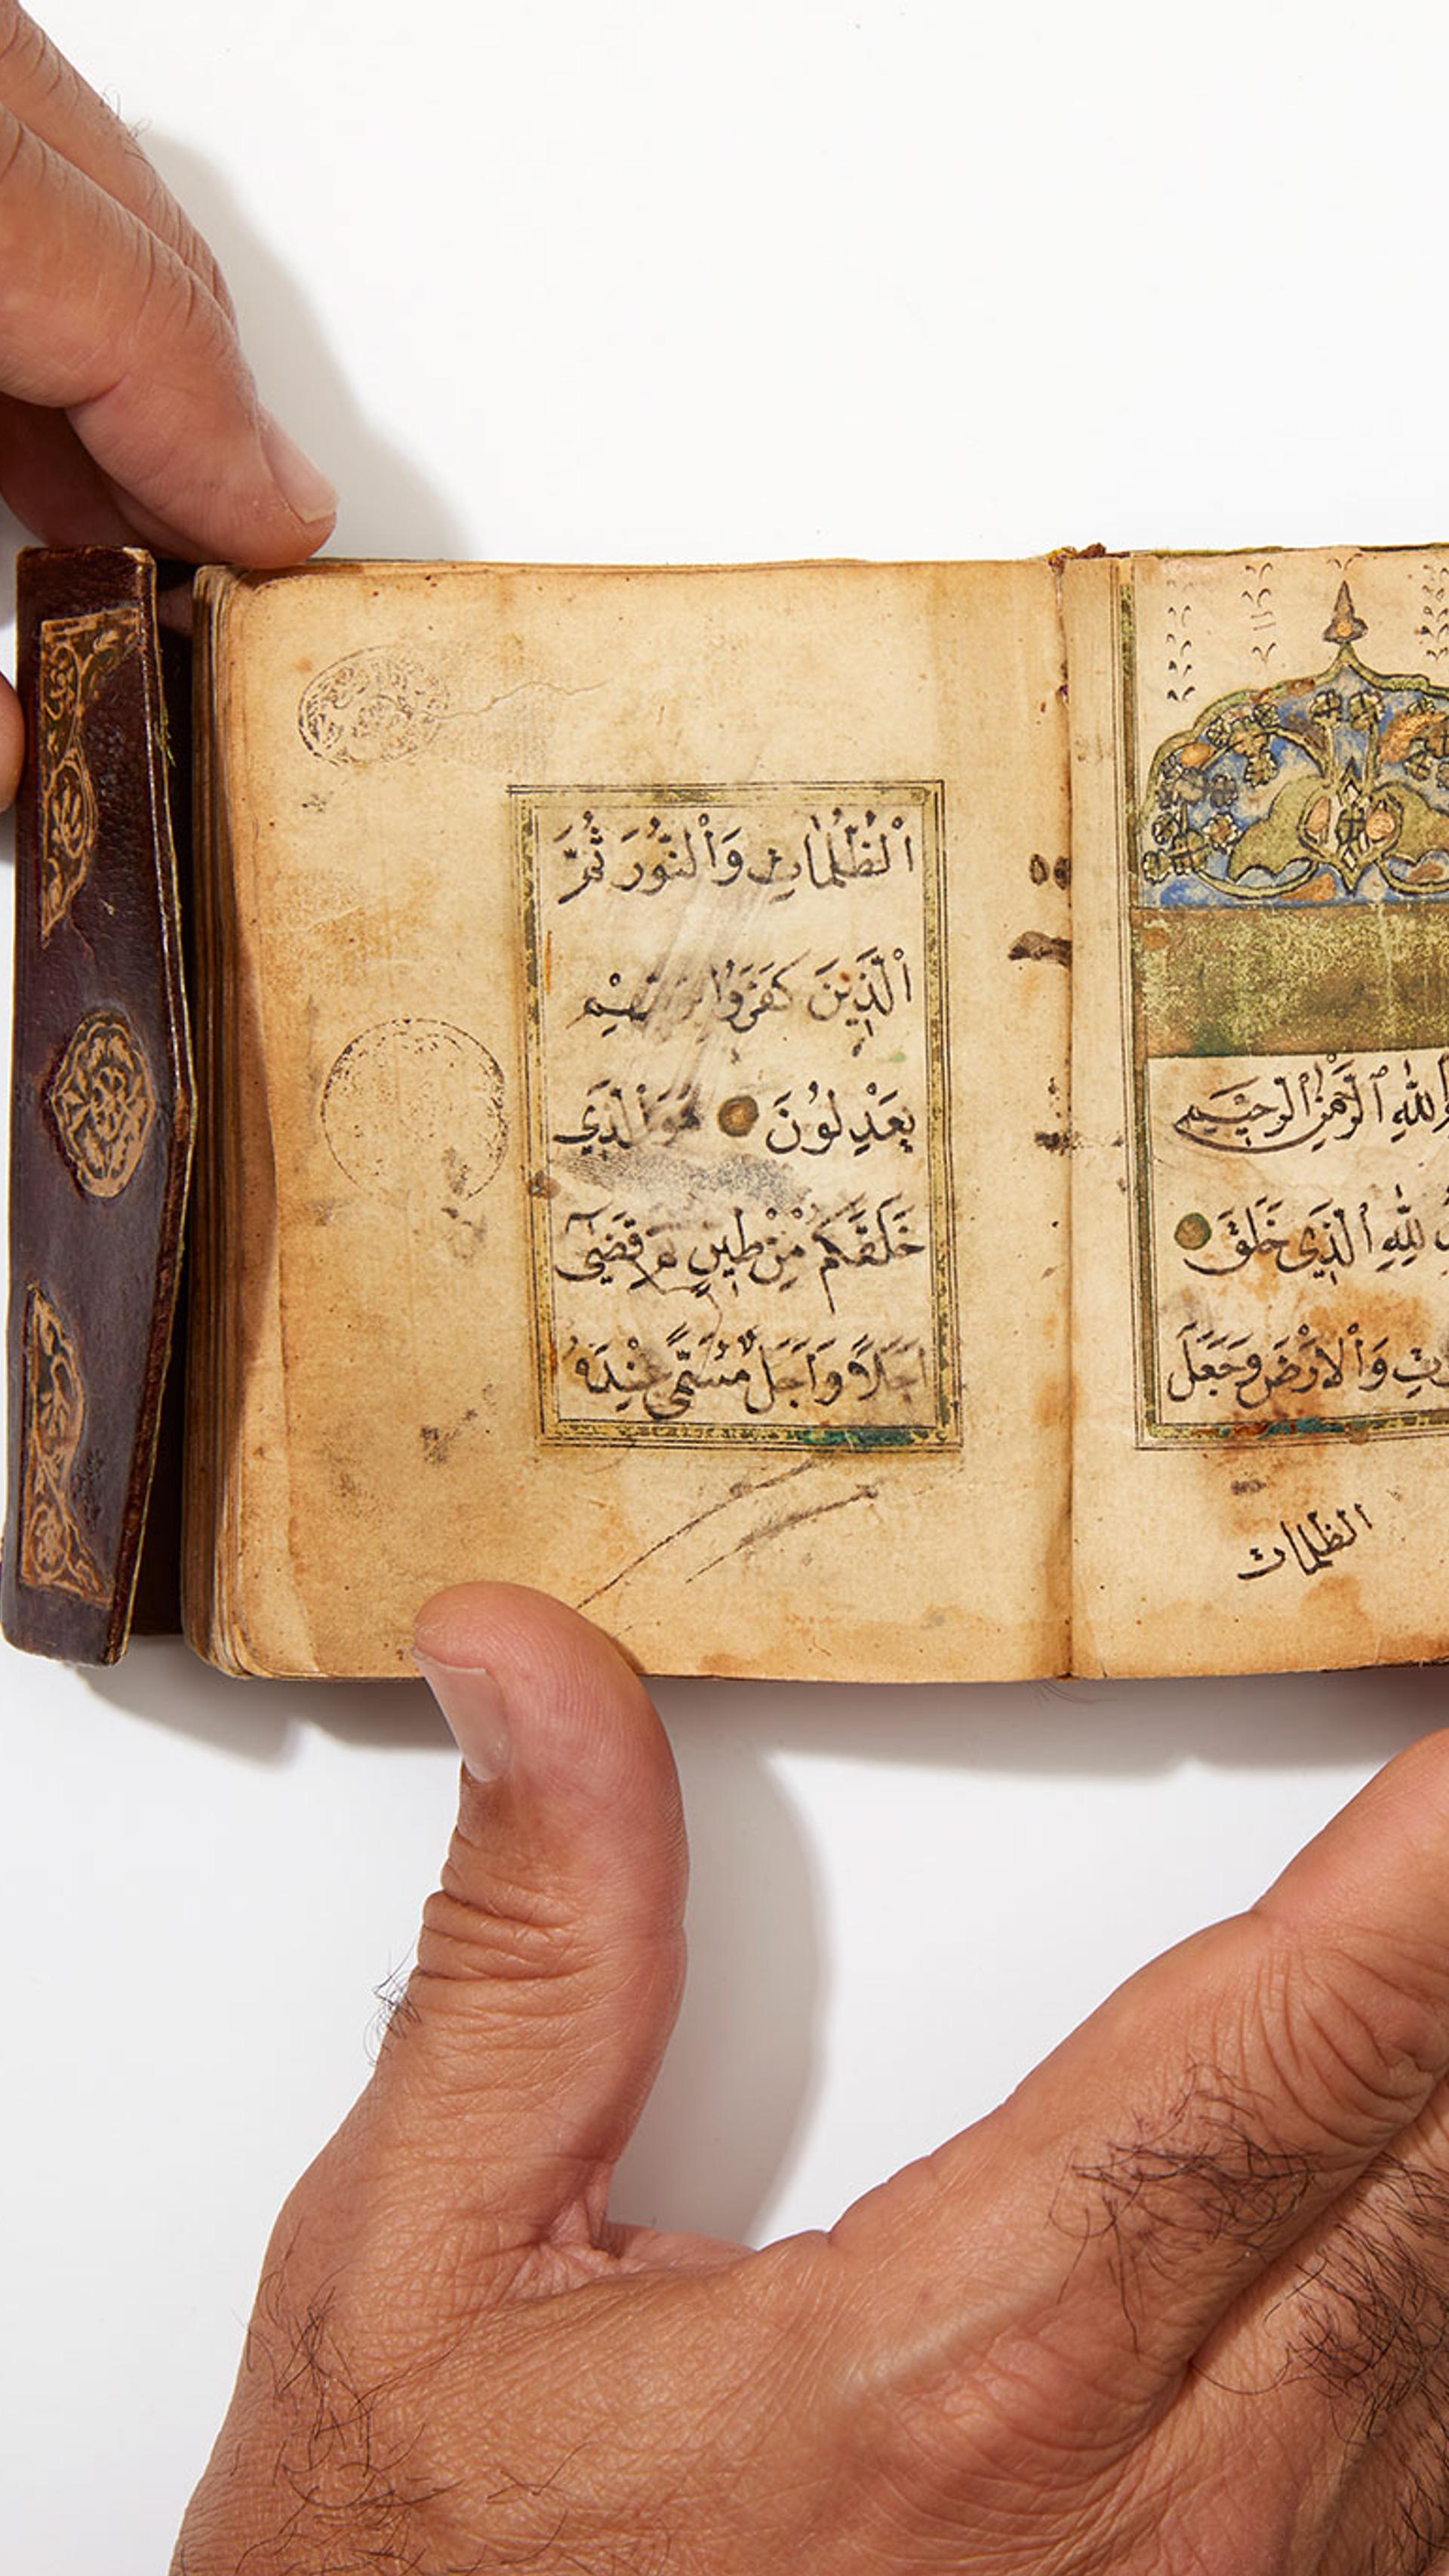 اللهِ الرَّحْمٰنِ الرَّحِيمِ
لِلّٰهِ الَّذِي خَلَقَ
وَالْاَرْضَ وَجَعَلَ
الظلمات
اَلظُّلُمَاتِ وَالنُّورَ ثُمَّ
الَّذِينَ كَفَرُوا بِرَبِّهِمْ
يَعْدِلُونَ هُوَ الَّذِي
خَلَقَكُمْ مِنْ طِينٍ ثُمَّ قَضَىٓ
اَجَلاً وَاَجَلٌ مُسَمًّى عِنْدَهُ